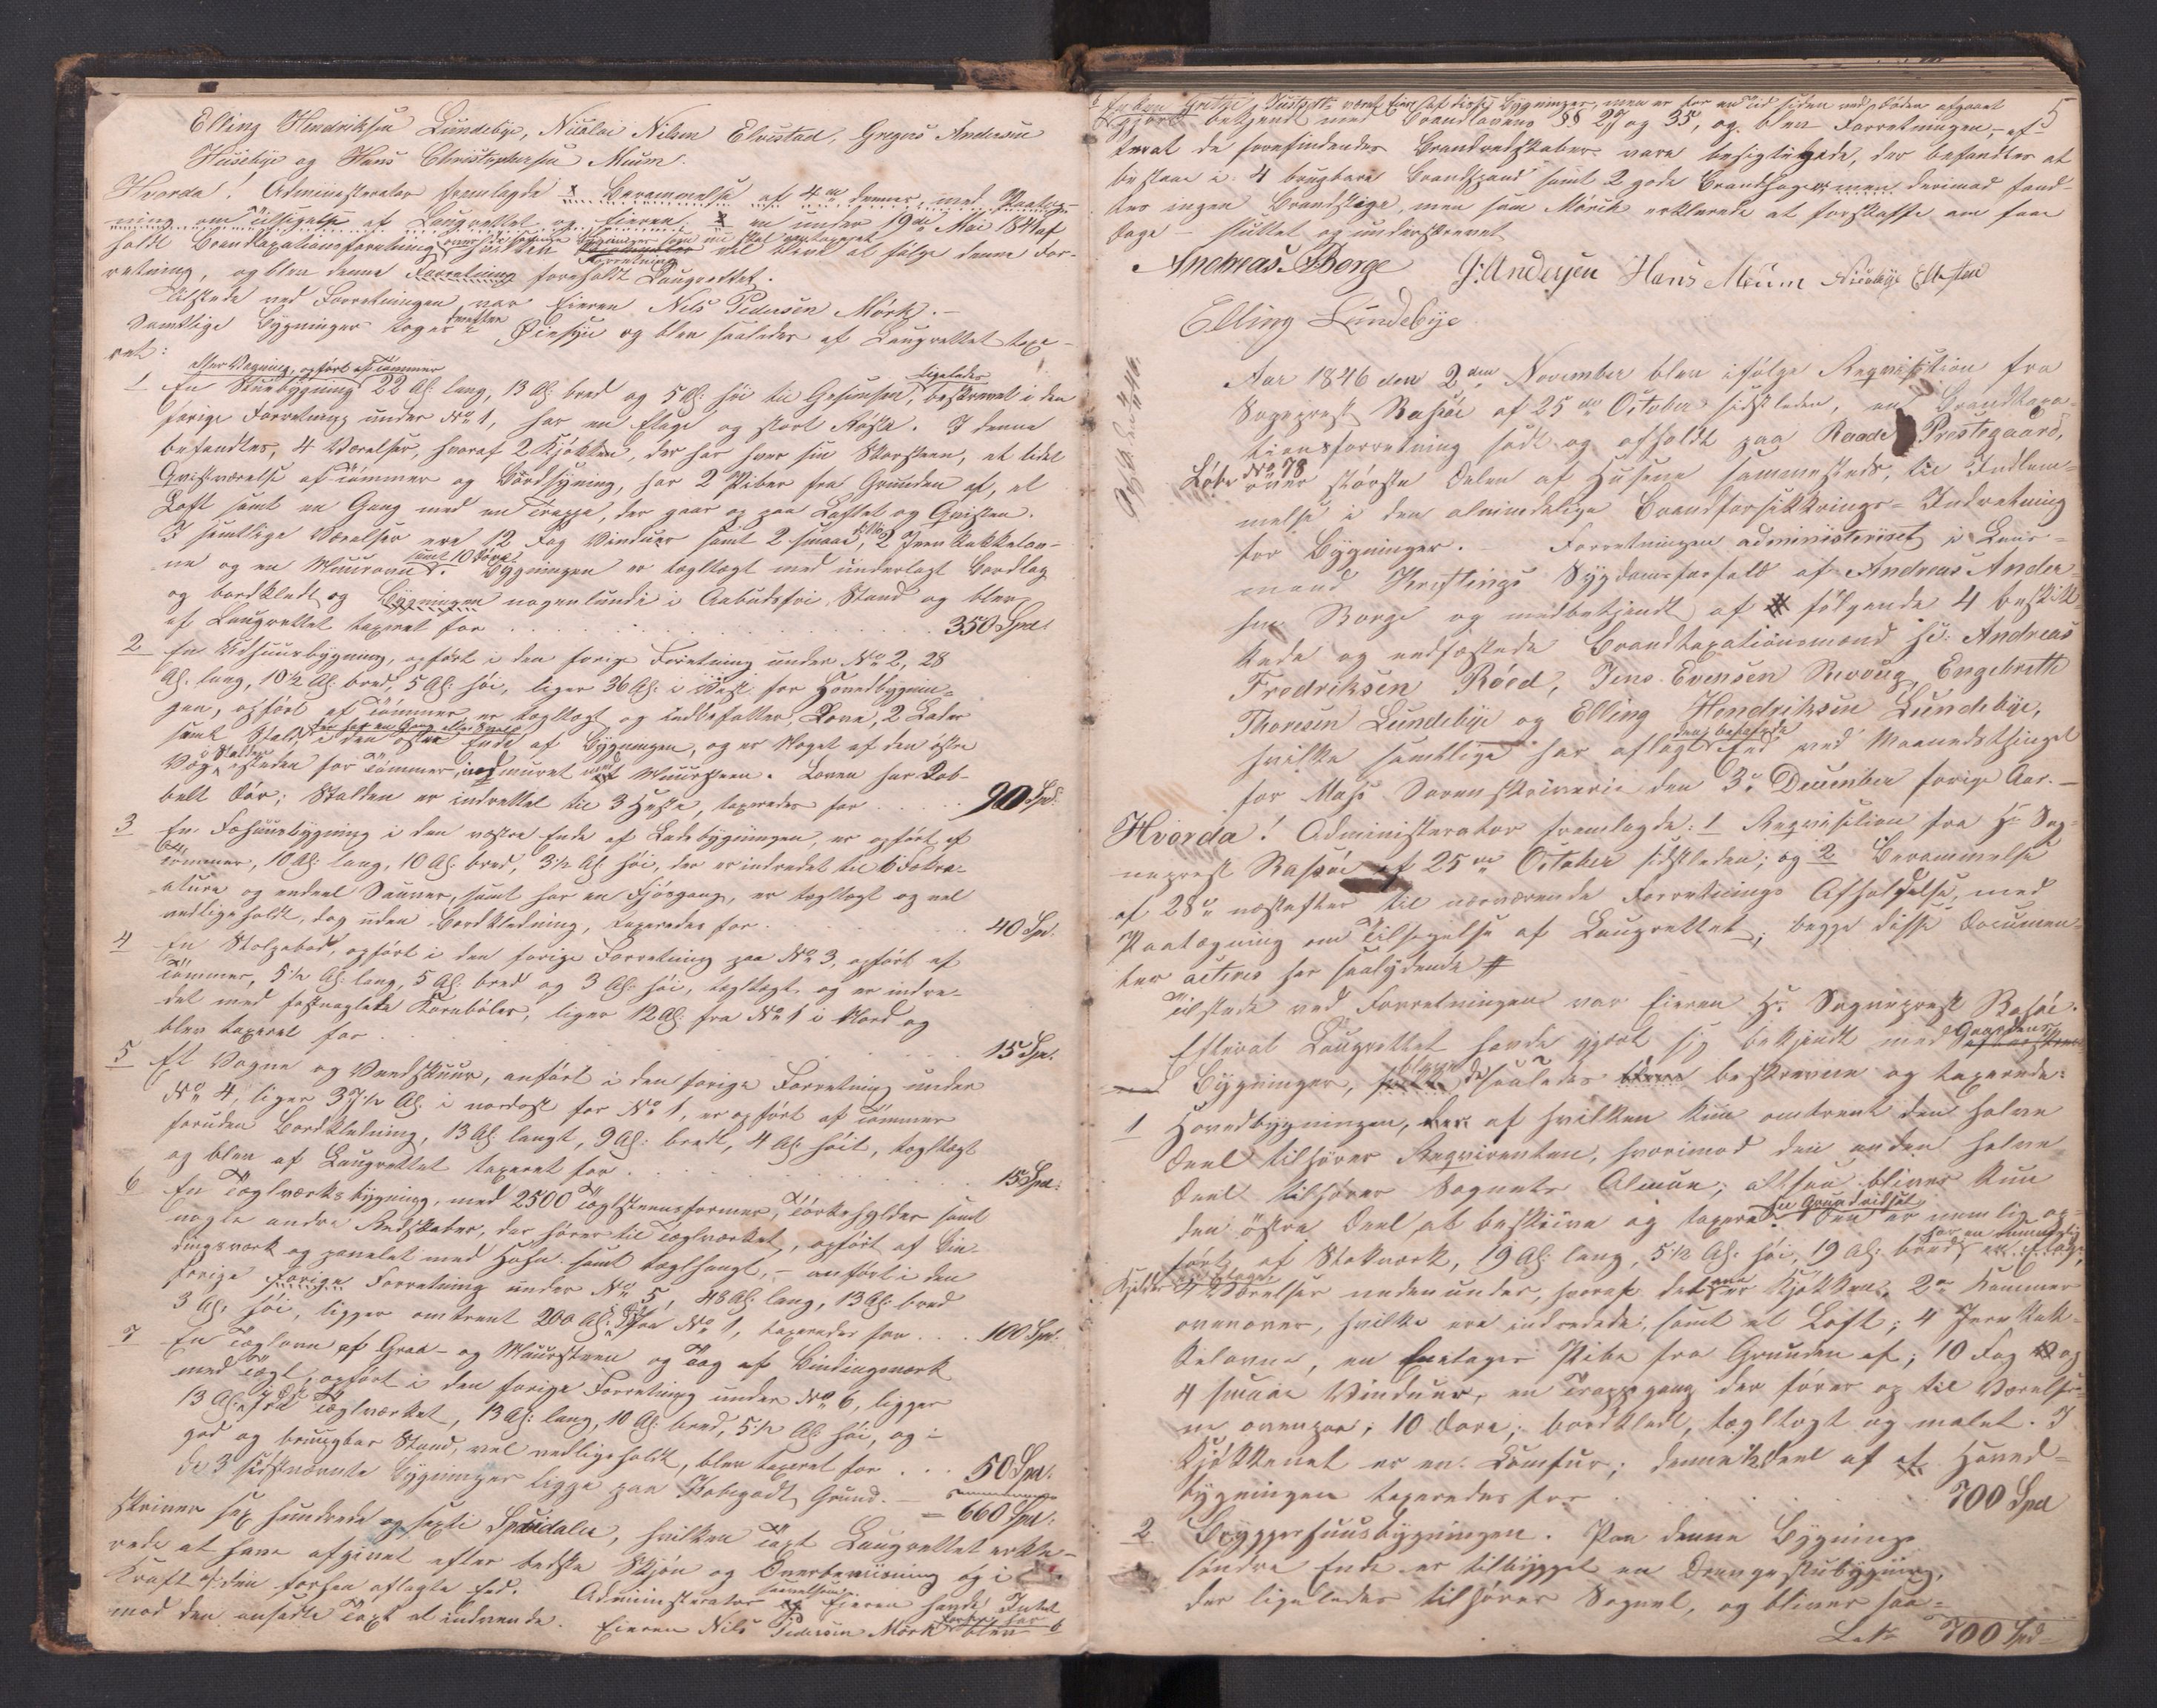 Elling Hendriksen Lundebye, Nicolai Nilsen Elvestad, Gregers Andersen
Husebye og Hans Christophersen Meum.
Hvorda! Administrator fremlagde Berammelse af 4de dennes med Paateg-
ning om Tilsigelse af Laugrettet og Eieren en under 19de Mai 1841 af
holdt Brandtaxationsforretning til at følge denne For-
retning, og blev denne Forretning foreholdt Laugrettet.
Tilstede ved Forretningen var Eieren Nils Pedersen Mørk. –
Samtlige Bygninger toges derefter i Øiesyn og blev saaledes af Laugrettet taxe-
ret:
efter Maaling, opført af Tømmer
1 En Stuebygning 22 Al. lang, 13 Al. bred og 5 Al. høi til Gesimsen, ligeledes beskrevet i den
forige Forretning under No 1, har en Etage og stort Røste. I denne
befandtes, 4 Værelser, hvoraf 2 Kjøkken, der har hver sin Skorsteen, et lidet
Qvistværelse af Tømmer og Bordsyning, har 2 Piber fra Grunden af, et
Loft samt en Gang med en Trappe, der gaar op paa Loftet og Qvisten.
I samtlige Værelser ere 12 Fag Vinduer samt 2 smaae, 2 Jern Kakkelov-
ne og en Muurovn samt 10 Døre. Bygningen er tegltagt med underlagt Bordtag
og bordkledt og Bygningen nogenlunde i Aabudsfri Stand og blev
af Laugrettet taxeret for . . . . . 350 Spd.
2 En Udhuusbygning, opført i den forige Forretning under No 2, 28
Al. lang, 10½ Al. bred, 5 Al. høi, liger 36 Al. i Vest for Hovedbygnin-
gen, opført af Tømmer, er tegltagt og indbefatter, Love, 2 Lader
samt Stald, i den østre Ende af Bygningen, og er Noget af den østre
Væg i Stalden istedet for Tømmer, muret af Muursteen. Loven har Dob-
belt Dør; Stalden er indrettet til 3 Heste, taxeredes for . . . 90 Spd.
3 En Fæhuusbygning i den vestre Ende af Ladebygningen, er opført af
Tømmer, 10 Al. lang, 10 Al. bred, 3½ Al. høi, der er indredet til 6 Fækre-
ature og endeel Sauer, samt har en Fjøsgang, er tegltagt og vel
vedligeholdt, dog uden Bordkledning, taxeredes for . . . 40 Spd.
4 En Stolpebod, opført i den forige Forretning paa No 3, opført af
Tømmer, 5½ Al. lang, 5 Al. bred og 3 Al. høi, tegltagt, og er indre-
det med fastnaglede Kornbøler, liger 12 Al. fra No 1 i Nord og
blev taxeret for . . . . 15 Spd.
5 Et Vogne og Vedskuur, anført i den forige Forretning under
No 4, liger 37½ Al. i nordost for No 1, er opført af Tømmer
foruden Bordkledning, 13 Al. langt, 9 Al. bredt, 4 Al. høit, tegltagt
og blev af Laugrettet taxeret for . . . . 15 Spd.
6 En Teglværksbygning, med 2500 Teglsteensformer, Tørkehylder samt
nogle andre Redskaber, der hører til Teglværket, opført af Bin-
dingsverk og panelet med Hohn samt teglhengt, – anført i den
forige Forretning under No 5, 48 Al. lang, 13 Al. bred
3 Al. høi, ligger omtrent 200 Al. fra No 1, taxeredes for . . . 100 Spd.
7 En Teglovn af Graa- og Muursteen og Tag af Bindingsværk
med Tegl, opført i den forige Forretning under No 6, ligger
13 Al. fra Teglværket, 13 Al. lang, 10 Al. bred, 5½ Al. høi, og i
god og brugbar Stand, vel vedligeholdt, blev taxeret for . . . 50 Spd.
de 3 sidstnævnte Bygninger ligge paa Kobegodt Grund. –
= 660 Spd.
skriver sex hundrede og sexti Speciedaler, hvilken Taxt Laugrettet erklæ-
rede at have afgivet efter bedste Skjøn og Overbeviisning og i
Kraft af den forhen aflagte Eed. Administrator saavelsom Eieren havde Intet
mod den ansatte Taxt at indvende. Eieren Nils Pedersen Mørk blev
5
været Eier af disse Bygninger, men er for en Tid siden ved Døden afgaaet
gjort bekjendt med Brandlovens §§ 27 og 35, og blev Forretningen, – ef-
terat de forefindendes Brandredskaber vare besigtigede, der befandtes at
bestaae i 4 brugbare Brandspand samt 2 gode Brandhager, men derimod fand-
tes ingen Brandstige, men som Mørk erklærede at forskaffe om faae
Dage – sluttet og underskrevet
Andreas Borge G: Andersen Hans Meum
Elling Lundebye
Aar 1846 den 2den November blev ifølge Requisition fra
Sogneprest Rasch af 25de October sidstleden, en Brandtaxa-
tionsforretning sadt og afholdt paa Raade Prestegaard,
Løbe No 78
over største Delen af Husene sammesteds, til Indlem-
melse i den almindelige Brandforsikkrings-Indretning
for Bygninger. – Forretningen administeriret i Lens-
mand Kreftings Sygdomsforfald af Andreas Ander-
sen Borge og medbetjendt af følgende 4 beskik-
kede og eedfæstede Brandtaxationsmænd se: Andreas
Fredriksen Røed, Jens Evensen Skoug, Engebreth
Thoresen Lundebye og Elling Hendriksen Lundebye,
hvilke samtlige har aflagt den befalede Eed ved Maanedsthinget
for Moss Sorenskriverie den 3de December forige Aar. –
Hvorda! Administerator fremlagde: 1 Reqvisition fra Hr Sog-
neprest Rasch af 25de October sidstleden; og 2 Berammelse
af 28de næstefter til nærværende Forretnings Afholdelse, med
Paategning om Tilsigelse af Laugrettet; begge disse Documen-
ter acteres her saalydende #
Tilstede ved Forretningen var Eieren Hr. Sogneprest Rasch.
Efterat Laugrettet havde gjort sig bekjendt med Gaardens
Bygninger, bleve de saaledes beskrevne og taxerede:
1 Hovedbygningen, af hvilken kun omtrent den halve
Deel tilhører Reqvirenten, hvorimod den anden halve
Deel tilhører Sognets Almue; altsaa bliver kun
den østre Deel at beskrive og taxere. Den er nemlig op-
ført af Stokværk, 19 Al. lang, 5½ Al. høi, 19 Al. bred,
Kjelder 4 Værelser nedenunder, hvoraf det ene er Kjøkken, 2de Kammer
ovenover, hvilke ere indredede, samt et Loft; 4 Jern Kak-
kelovne, en Pibe fra Grunden af; 10 Fag og
4 smaae Vinduer, en Trappegang der fører op til Værelser-
ne ovenpaa; 10 Døre; bordkledt, tegltagt og malet. I
Kjøkkenet er en Komfur; denne Deel af Hoved-
bygningen taxeredes for . . . . 700 Spd
2 Bryggerhuusbygningen. Paa denne Bygnings
søndre Ende er tilbygget en Drengestubygning,
der ligeledes tilhører Sognet, og bliver saa-
Lats 700 Spd